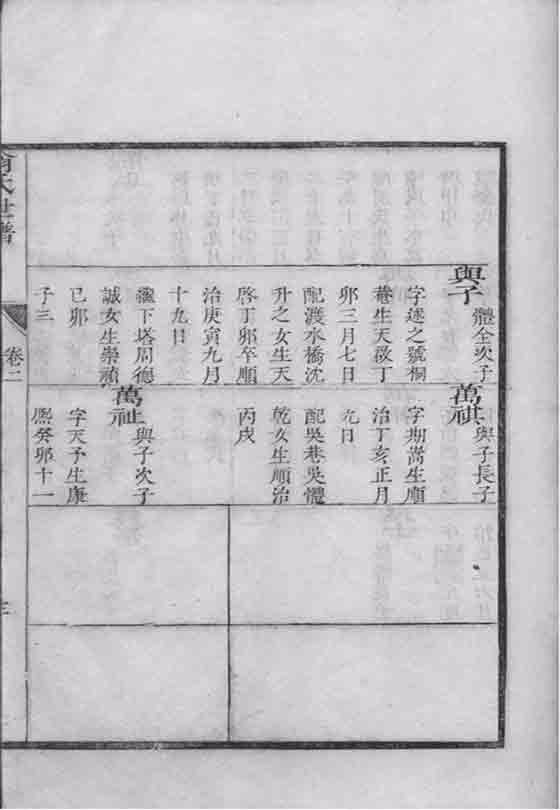 與子 體全次子
字逑之號桐
菴生天啟丁
卯三月七日
配渡水橋沈
升之女生天
啓丁卯卒順
治庚寅九月
十九日
繼下塔周德
誠女生崇禎
己卯
子三
萬祺 與子長子
字期嵩生順
治丁亥正月
九日
配吳巷吳體
乾女生順治
丙戌
萬祉 與子次子
字天予生康
熙癸卯十一
氏世譜
卷二